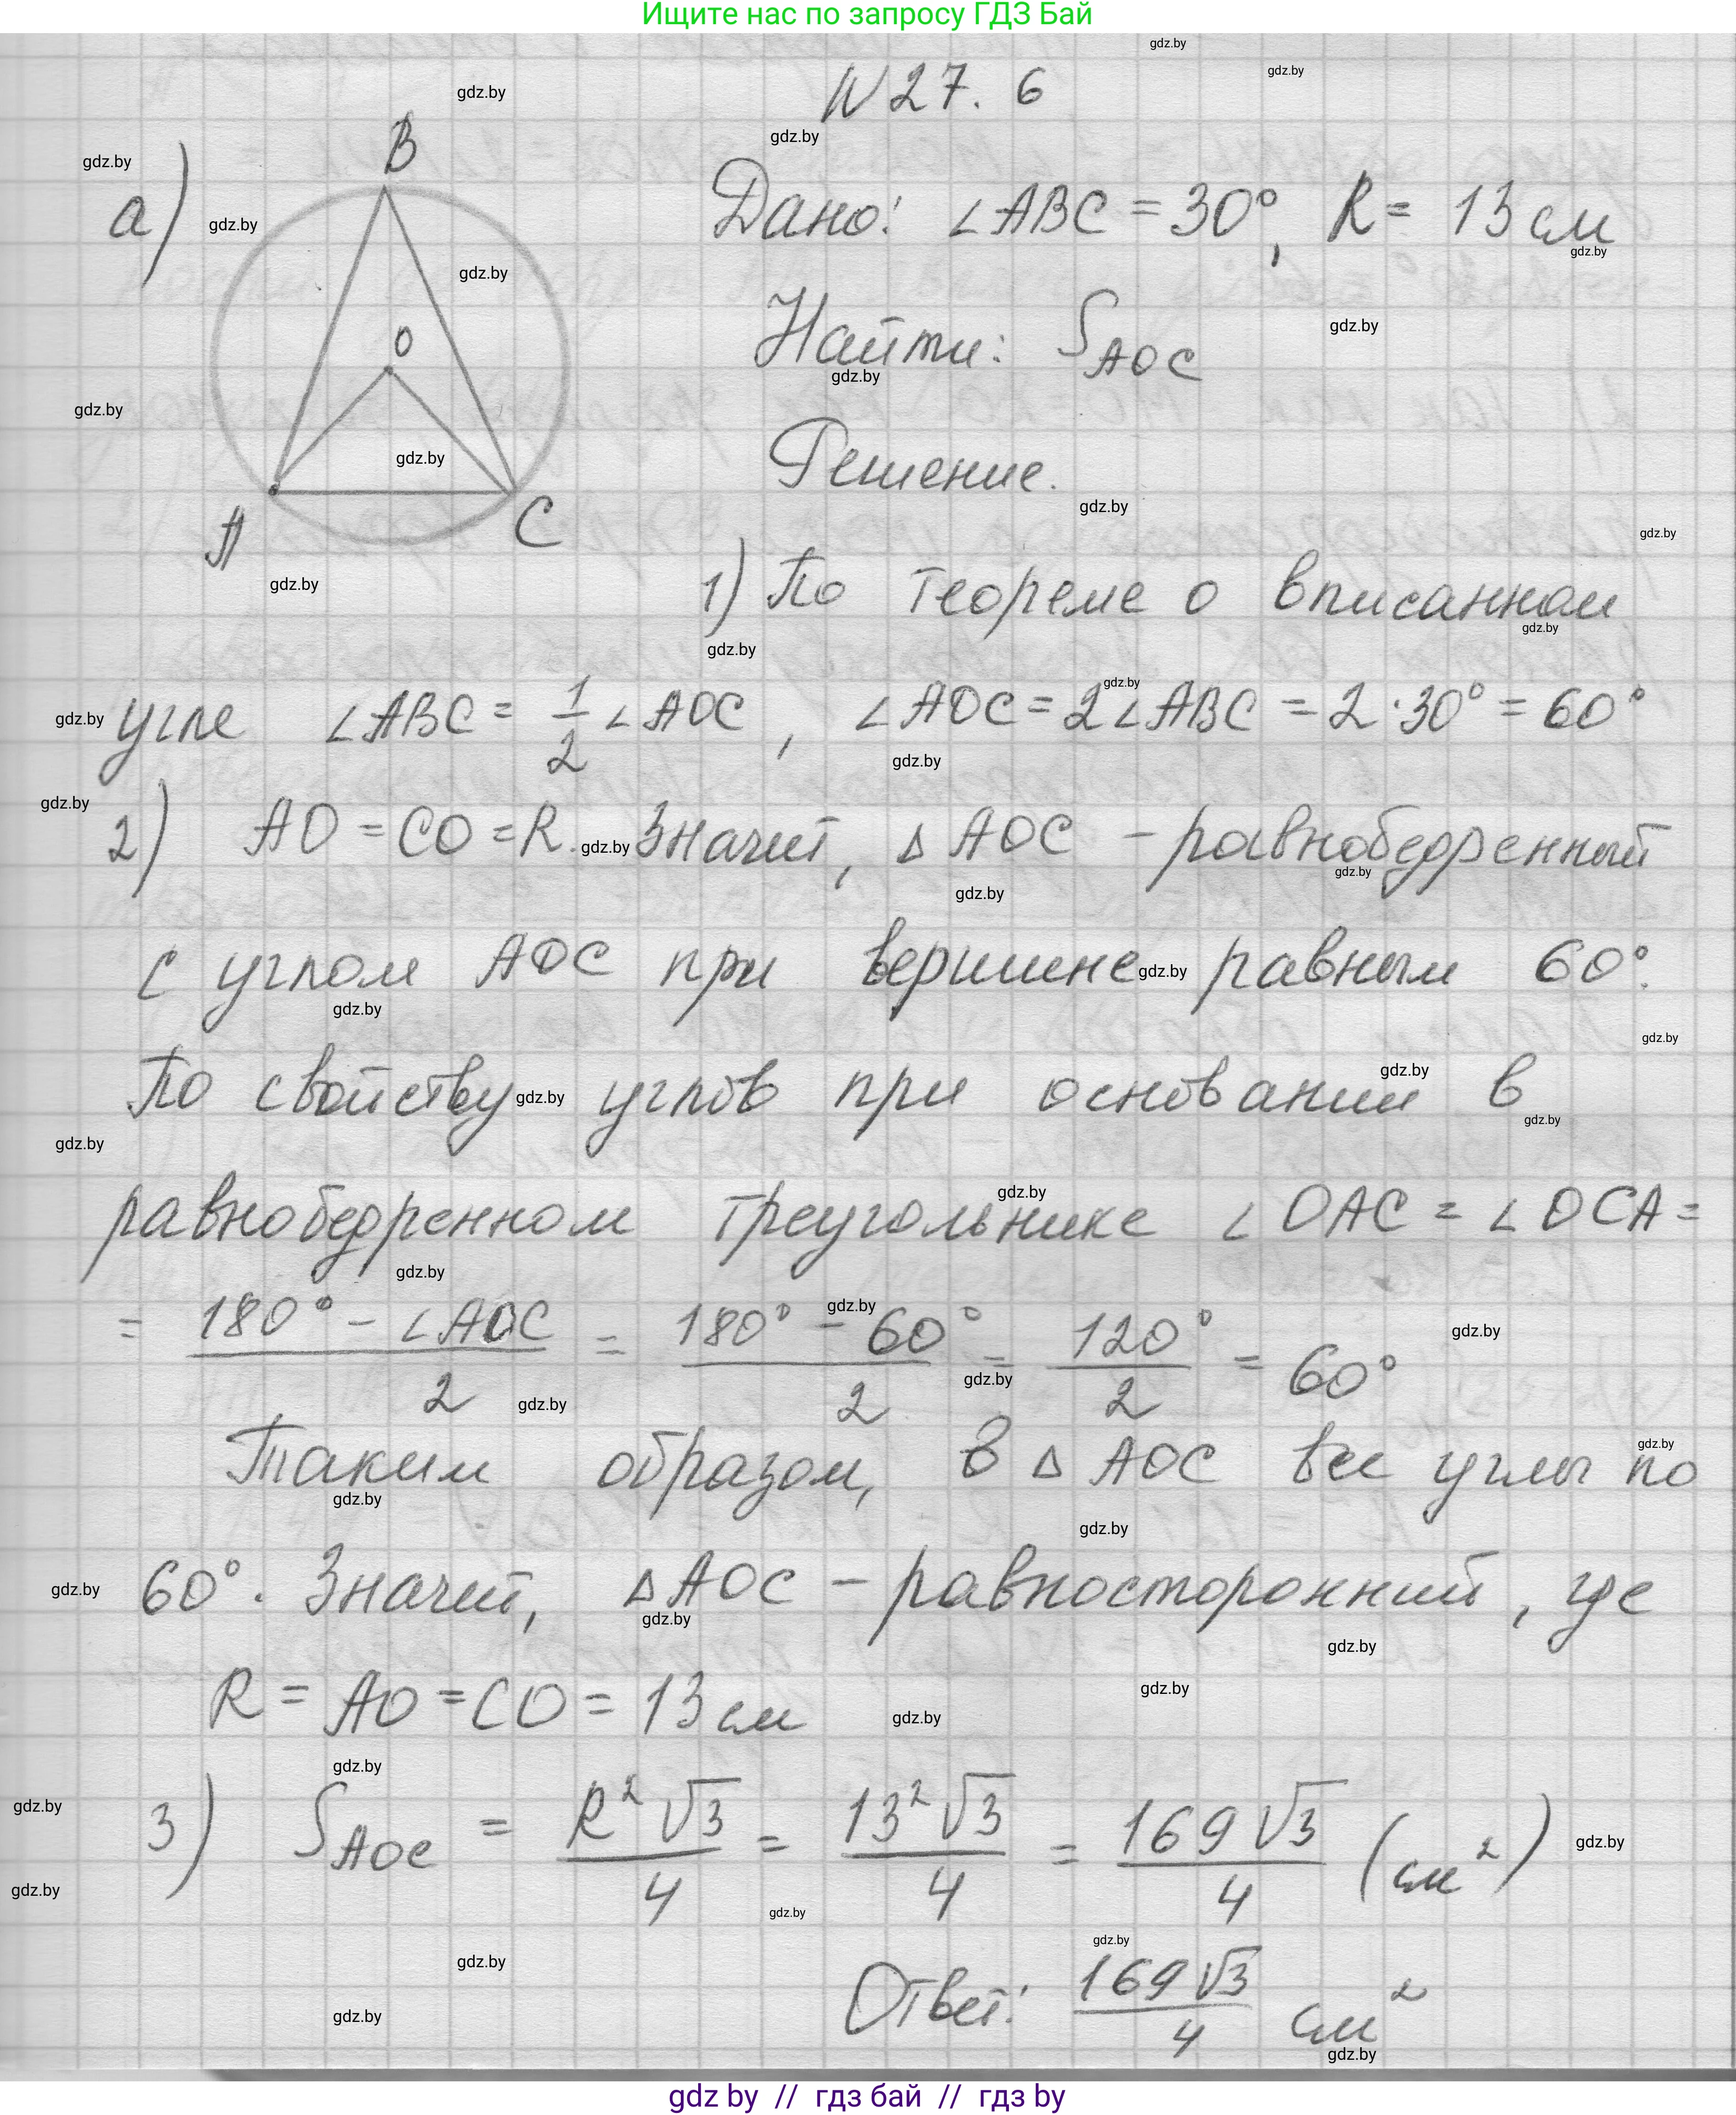 Ищите нас по запросу ГДЗ Бай
N 27. 6
а)
B
O
A
C
Дано: ∠ABC = 30°, R = 13 см
Найти: S_AOC
Решение.
1) По теореме о вписанном
угле ∠ABC = 1/2 ∠AOC, ∠AOC = 2∠ABC = 2·30° = 60°
2) AO = CO = R. Значит, △AOC – равнобедренный
с углом AOC при вершине равным 60°.
По свойству углов при основании в
равнобедренном треугольнике ∠OAC = ∠OCA =
= (180° – ∠AOC)/2 = (180° – 60°)/2 = 120°/2 = 60°
Таким образом, в △AOC все углы по
60°. Значит, △AOC – равносторонний, где
R = AO = CO = 13 см
3) S_AOC = R²√3/4 = 13²√3/4 = 169√3/4 (см²)
Ответ: 169√3/4 см²
gdz by // гдз бай // гдз by